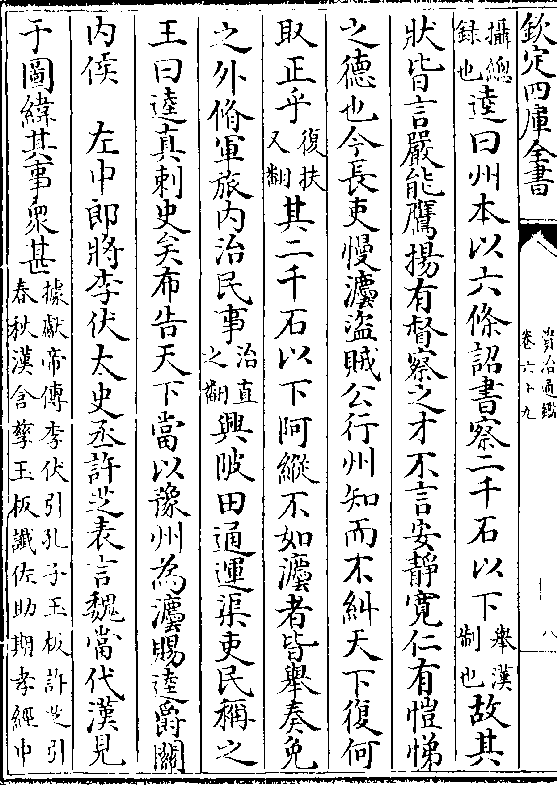 欽定四庫全書
資治通鑑
卷六十九
八
攝總
録也逵曰州本以六條詔書察二千石以下舉漢
制也故其
狀皆言嚴能鷹揚有督察之才不言安靜寛仁有愷悌
之德也今長吏慢灋盗賊公行州知而不糾天下復何
取正乎復扶
又翻其二千石以下阿縱不如灋者皆舉奏免
之外脩軍旅内治民事治直
之翻興陂田通運渠吏民稱之
王曰逵真刺史矣布告天下當以豫州為灋賜逵爵關
内侯 左中郎將李伏太史丞許芝表言魏當代漢見
于圖緯其事衆甚據獻帝傳李伏引孔子玉板許芝引
春秋漢含孳玉板䜟佐助期孝經中